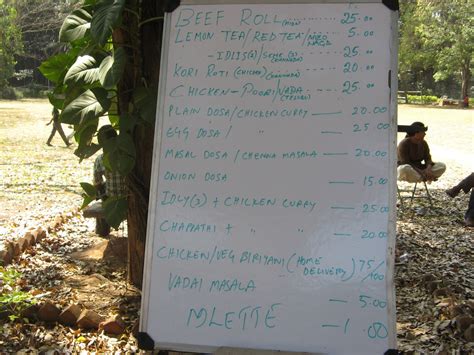 BEEF ROLL 25.00
LEMON TEA/RED TEA/ 5.00
- IDLIS/ 25.00
KORI ROTI (CHICKEN) 20.00
CHICKEN - POORI/VADA 25.00
PLAIN DOSA/CHICKEN CURRY — 20.00
EGG DOSA/ " — 25.00
MASAL DOSA/CHENNA MASALA — 20.00
ONION DOSA — 15.00
IDLY(3) + CHICKEN CURRY — 25.00
CHAPATHI + " " — 20.00
CHICKEN/VEG BIRIYANI (HOME DELIVERY) 75/100
VADAI MASALA — 5.00
MLETTE — 1.00